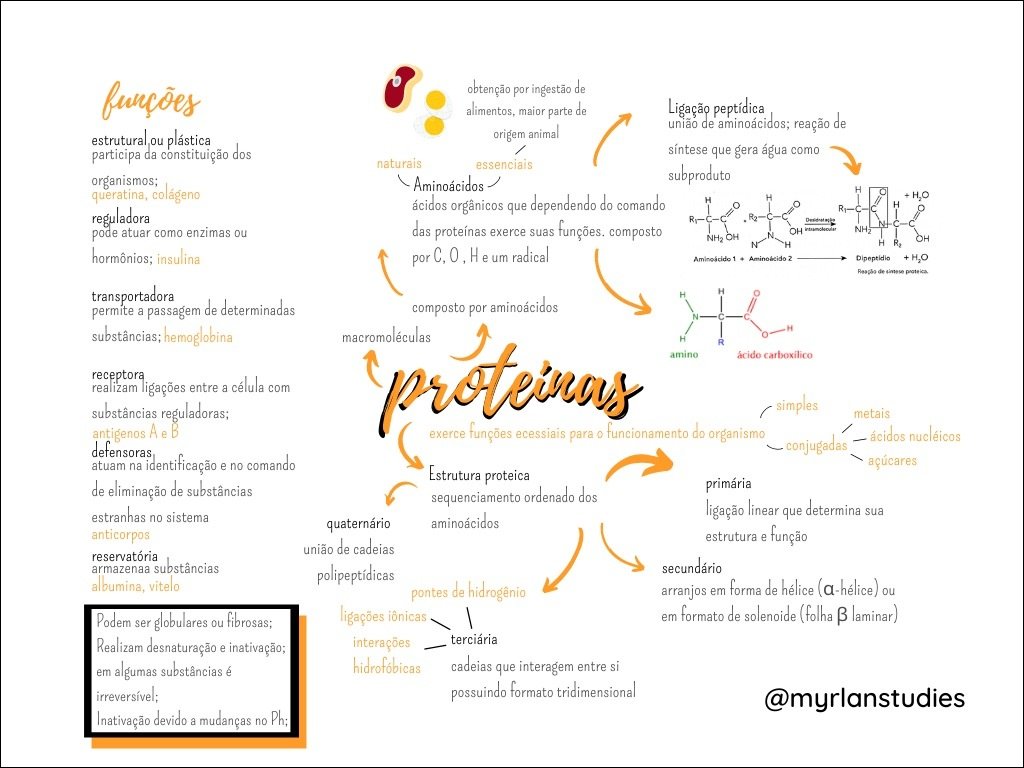 funções
estrutural ou plástica
participa da constituição dos
organismos;
queratina, colágeno
reguladora
pode atuar como enzimas ou
hormônios; insulina
transportadora
permite a passagem de determinadas
substâncias; hemoglobina
receptora
realizam ligações entre a célula com
substâncias reguladoras;
antigenos A e B
defensoras
atuam na identificação e no comando
de eliminação de substâncias
estranhas no sistema
anticorpos
reservatória
armazenaa substâncias
albumina, vitelo
Podem ser globulares ou fibrosas;
Realizam desnaturação e inativação;
em algumas substâncias é
irreversível;
Inativação devido a mudanças no Ph;
obtenção por ingestão de
alimentos, maior parte de
origem animal
naturais
essenciais
Aminoácidos
ácidos orgânicos que dependendo do comando
das proteínas exerce suas funções. composto
por C, O , H e um radical
composto por aminoácidos
macromoléculas
proteínas
exerce funções ecessiais para o funcionamento do organismo
simples
conjugadas
metais
ácidos nucléicos
açúcares
Ligação peptídica
união de aminoácidos; reação de
síntese que gera água como
subproduto
H
R₁ C C O
NH₂ OH
+
H
R₂ C C O
N OH
H
Desidratação
intramolecular
H O
R₁ C C H O
NH₂ N C C
H R₂ OH
+ H₂O
Aminoácido 1 + Aminoácido 2
Dipeptídio + H₂O
Reação de síntese proteica.
H H O
N C C
H R O H
amino
ácido carboxílico
Estrutura proteica
sequenciamento ordenado dos
aminoácidos
primária
ligação linear que determina sua
estrutura e função
secundário
arranjos em forma de hélice (α-hélice) ou
em formato de solenoide (folha β laminar)
quaternário
união de cadeias
polipeptídicas
pontes de hidrogênio
ligações iônicas
interações
hidrofóbicas
terciária
cadeias que interagem entre si
possuindo formato tridimensional
@myrlanstudies